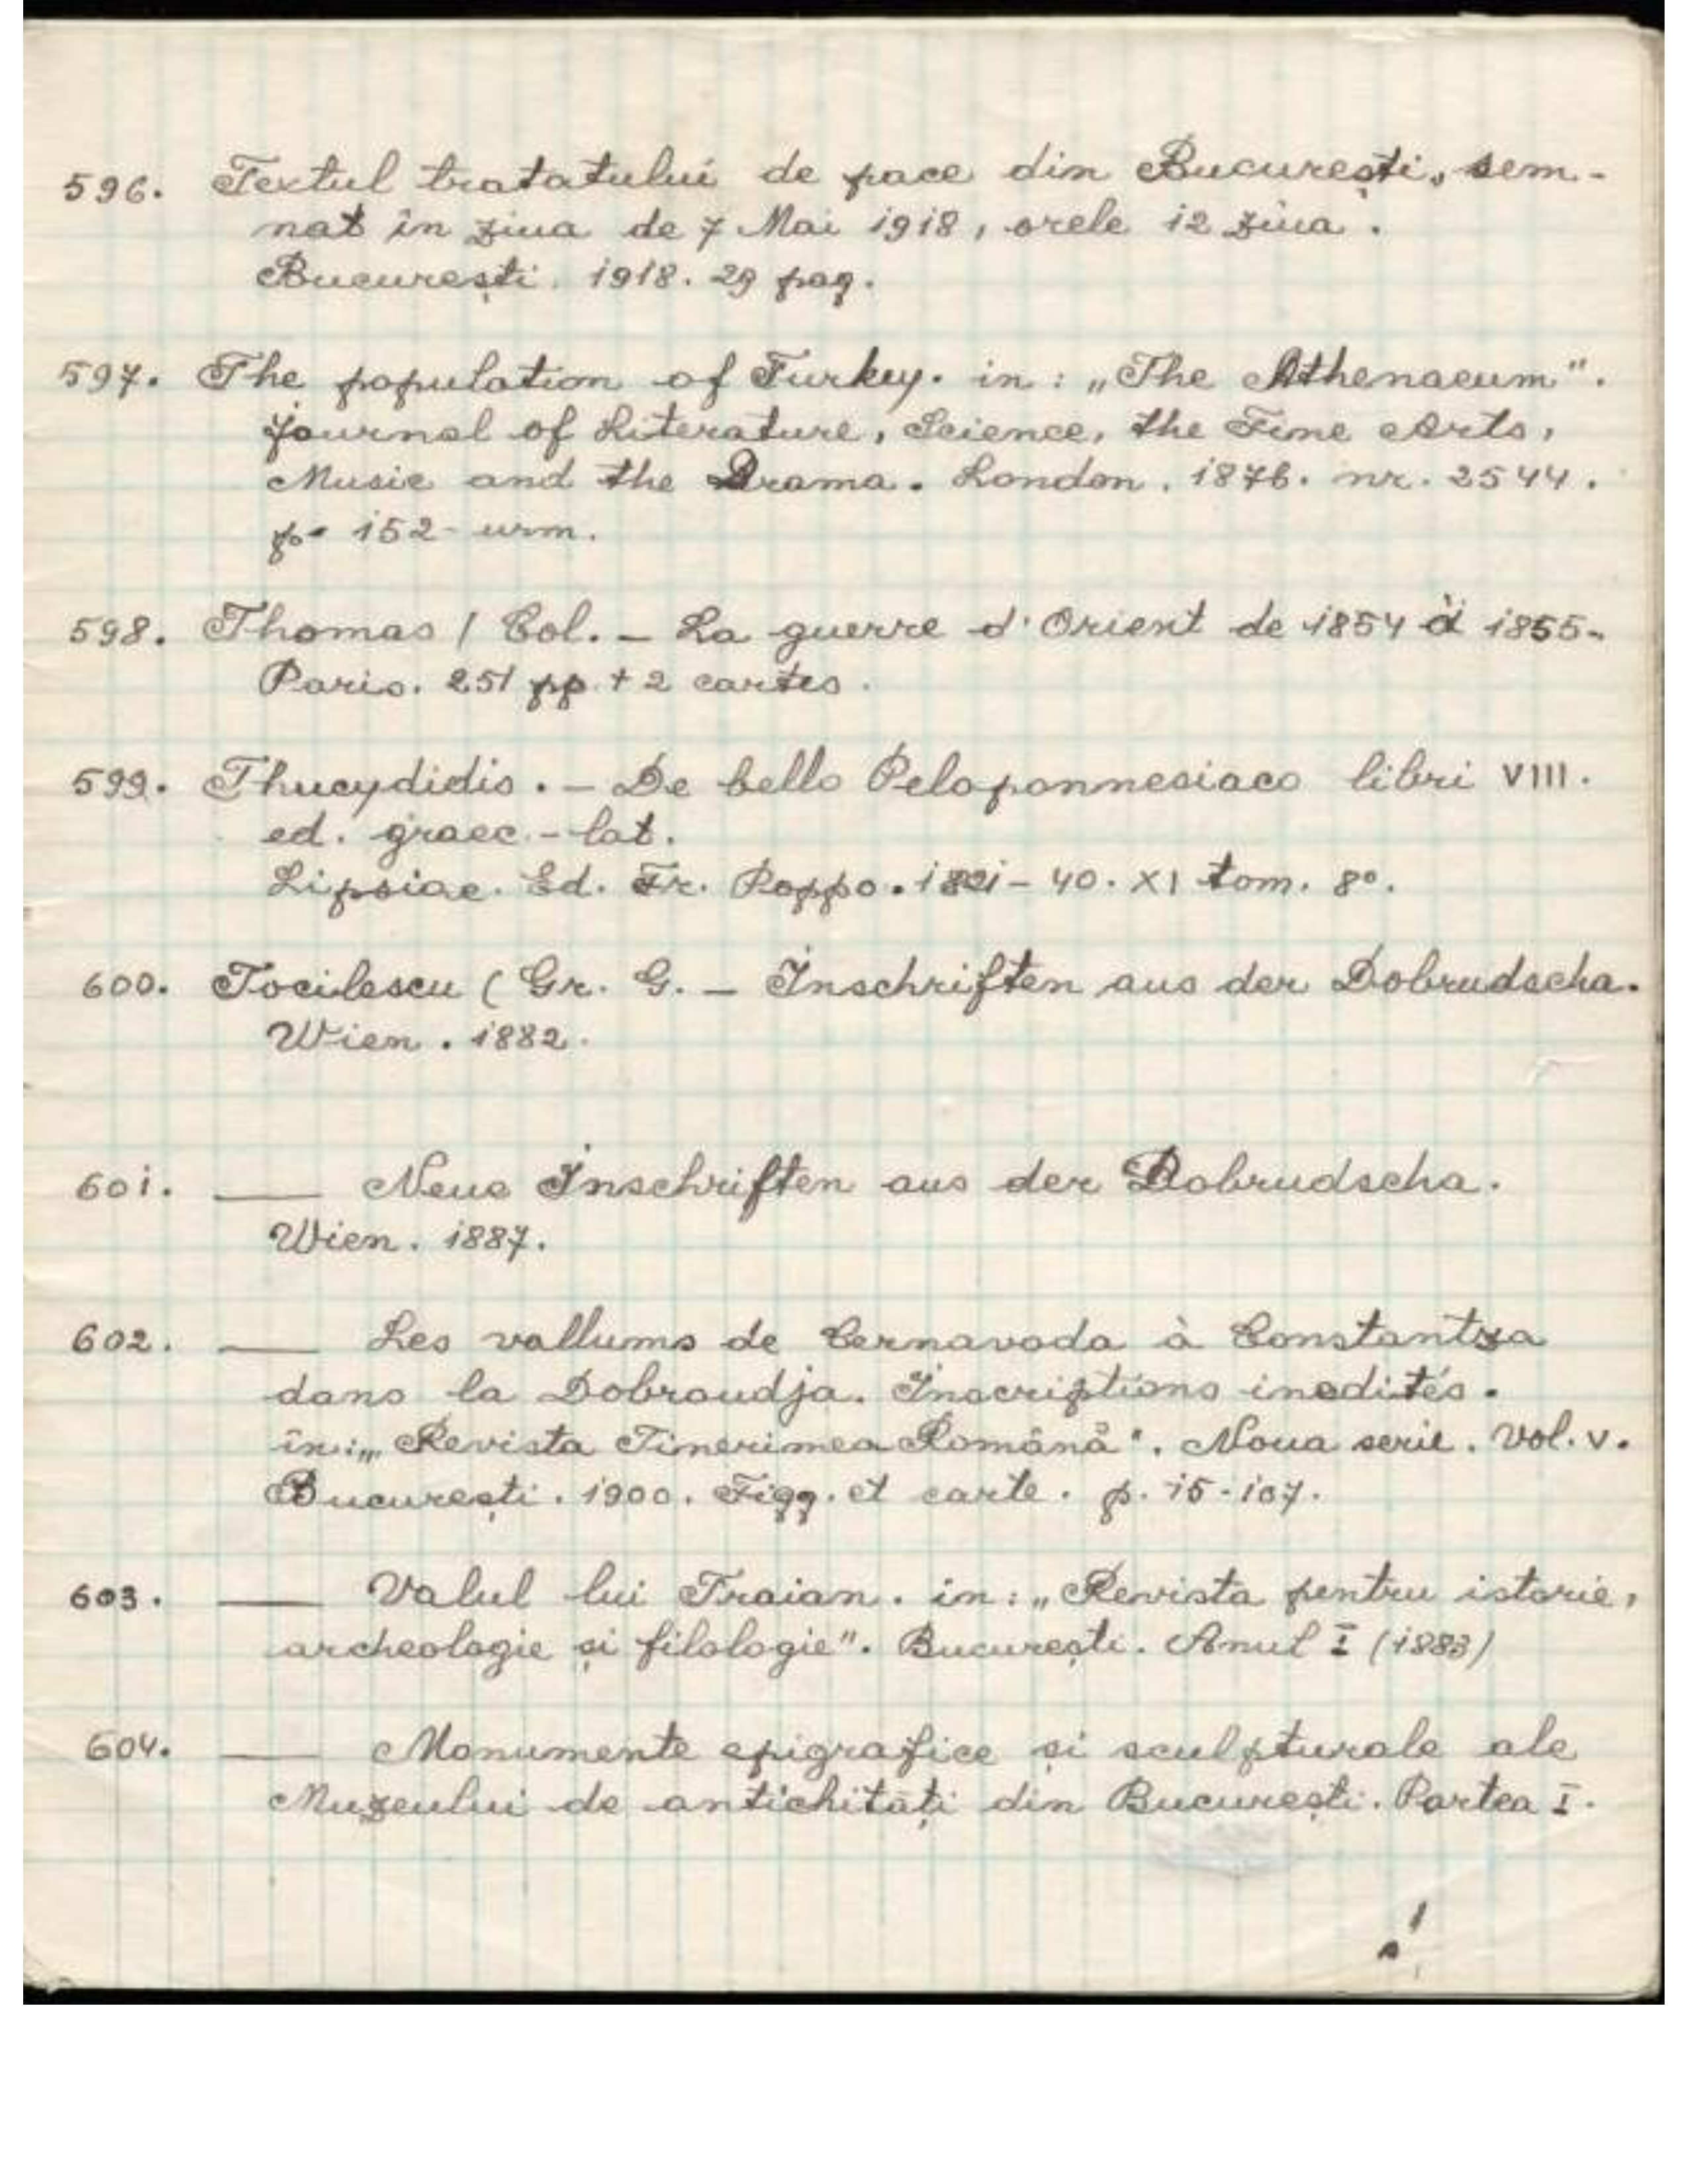 596. Textul tratatului de pace din București, sem-
nat în ziua de 7 Mai 1918, orele 12 ziua.
București. 1918. 29 pag.
597. The population of Turkey. in: „The Athenaeum".
Journal of Literature, Science, the Fine Arts,
Music and the Drama. London. 1876. nr. 2544.
p. 152 urm.
598. Thomas / Col. – La guerre d'Orient de 1854 à 1855.
Paris. 251 pp + 2 cartes.
599. Thucydidis. – De bello Peloponnesiaco libri VIII.
ed. graec.-lat.
Lipsiae. Ed. Fr. Poppo. 1821-40. XI tom. 8°.
600. Tocilescu (Gr. G. – Inschriften aus der Dobrudscha.
Wien. 1882.
601. — Neue Inschriften aus der Dobrudscha.
Wien. 1887.
602. — Les vallums de Cernavoda à Constantza
dans la Dobroudja. Inscriptions inedités.
in: „Revista Tinerimea Română". Noua serie. Vol. V.
București. 1900. Figg. et carte. p. 15-107.
603. — Valul lui Traian. in: „Revista pentru istorie,
archeologie și filologie". București. Anul I (1883)
604. — Monumente epigrafice și sculpturale ale
Muzeului de antichități din București. Partea I.